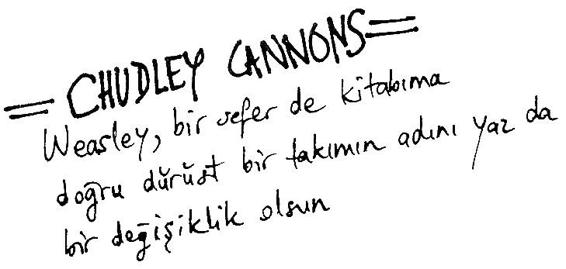 = CHUDLEY CANNONS =
Weasley, bir sefer de kitabıma
doğru dürüst bir takımın adını yaz da
bir değişiklik olsun